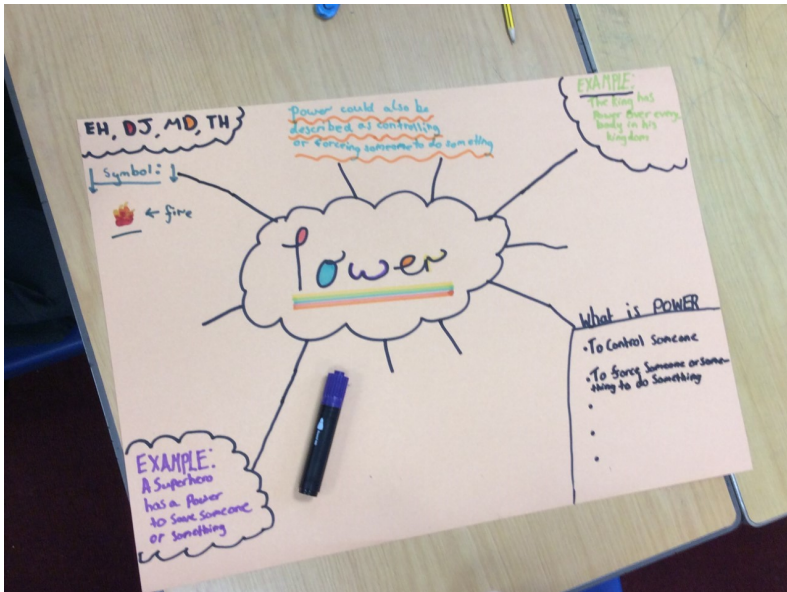 EH, DJ, MD, TH
Symbol:
← fire
Power could also be
described as controlling
or forceing someone to do something
EXAMPLE:
The king has
Power over every
body in his
kingdom
Power
What is POWER
•To Control Someone
•To force Someone or some-
thing to do Something
•
•
•
EXAMPLE:
A Superhero
has a Power
to save someone
or something